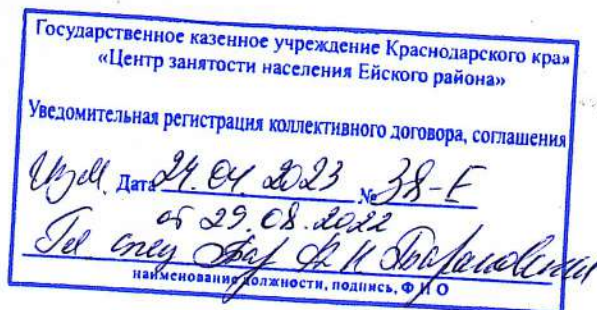 Государственное казенное учреждение Краснодарского края
«Центр занятости населения Ейского района»
Уведомительная регистрация коллективного договора, соглашения
Изм. Дата 24.04.2023 № 38-Е
от 29.08.2022
Гл спец
наименование должности, подпись, Ф И О